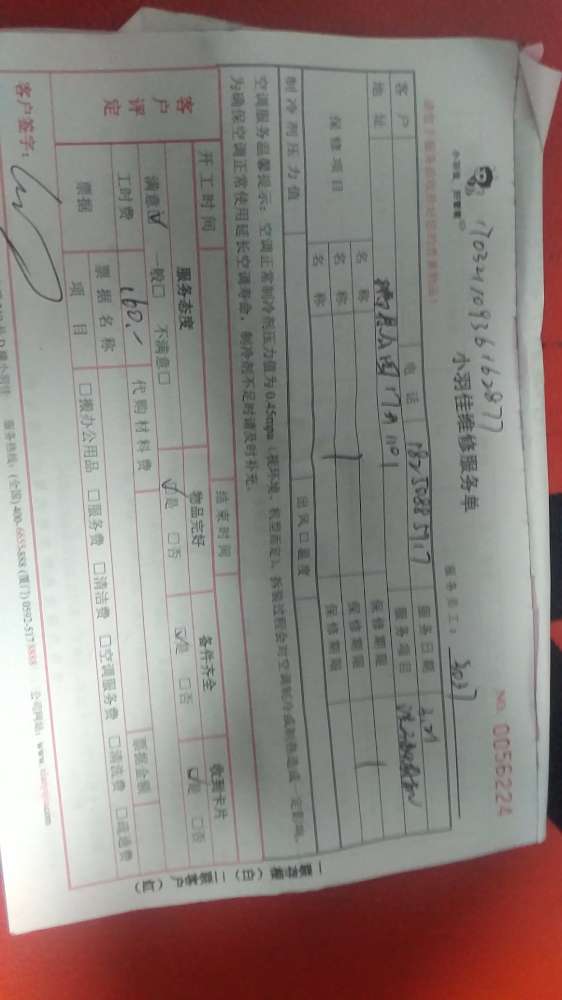 1703210936162877
小羽佳 好管家
小羽佳维修服务单
NO. 0056224
服务员工: 3037
客户 电话 18250885917 服务日期 3.21
地址 17# 1101 服务项目
保修项目 名称 保修期限
名称 保修期限
名称 保修期限
制冷剂压力值 出风口温度
空调服务温馨提示:空调正常制冷剂压力值为0.45mpa(视环境、机型而定),拆装过程会对空调制冷或制热造成一定影响。
为确保空调正常使用延长空调寿命,制冷剂不足时请及时补充。
开工时间 结束时间
客户评定 服务态度 物品完好 备件齐全 收到卡片
满意☑ 一般□ 不满意□ ☑是 □否 ☑是 □否 ☑是 □否
工时费 160.- 代购材料费
票据 票据名称 票据金额
项目 □搬办公用品 □服务费 □清洁费 □空调服务费 □清洗费 □疏通费
客户签字:
服务热线:(全国)400-6655-888 (厦门)0592-5178888 公司网站:www.
一联存根(白) 二联客户(红)